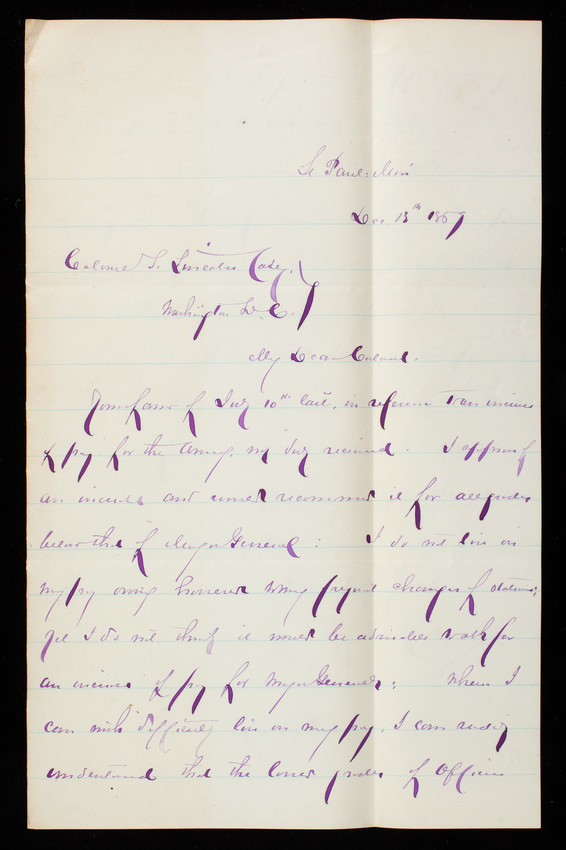 St Paul: Min
Dec 13th 1869
Colonel T. Lincoln Casey,
Washington D. C.
My Dear Colonel.
Your favor of July 10th last, in reference to an increase
of pay for the Army, was duly received. I approve of
an increase and would recommend it for all grades
below that of Major General: I do not live on
my pay owing however to my frequent changes of stations;
yet I do not think it would be advisable to ask for
an increase of pay for Major Generals: When I
can with difficulty live on my pay, I can readily
understand that the lower grades of officers